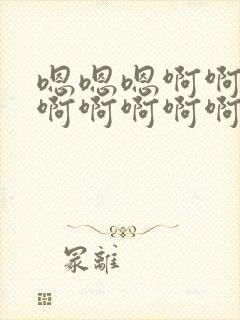 嗯嗯嗯啊啊
啊啊啊啊啊
冢離